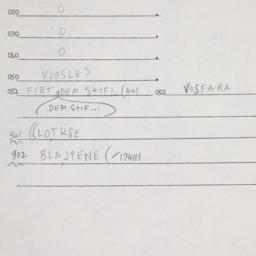 020 0
030 0
040 0
050 VJOSLES
051 FIRT DEM STIFL (401 052 VOSFARA
DEM STIF...
501 ((LOTKPE
902 BLAJPENE (-174111